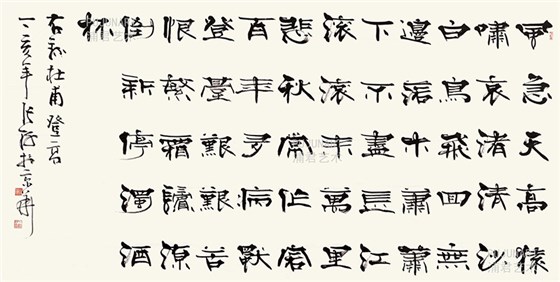 風急天高猿
嘯哀渚清沙
白鳥飛回無
邊落木蕭蕭
下不盡長江
滾滾來萬里
悲秋常作客
百年多病獨
登臺艱難苦
恨繁霜鬢潦
倒新停濁酒
杯
右杜甫登高
丁亥年於京華